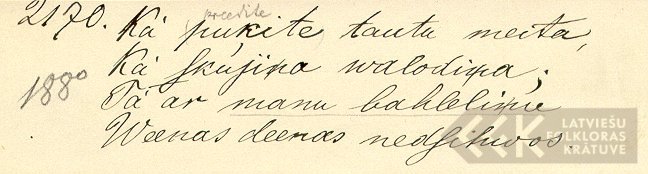 preedite
2170. Kà pukite tautu meita,
Kà skujiņa walodiņa;
1880
Tà ar manu bahleliņu
Weenas deenas nedsihwos.
LATVIEŠU
FOLKLORAS
KRĀTUVE